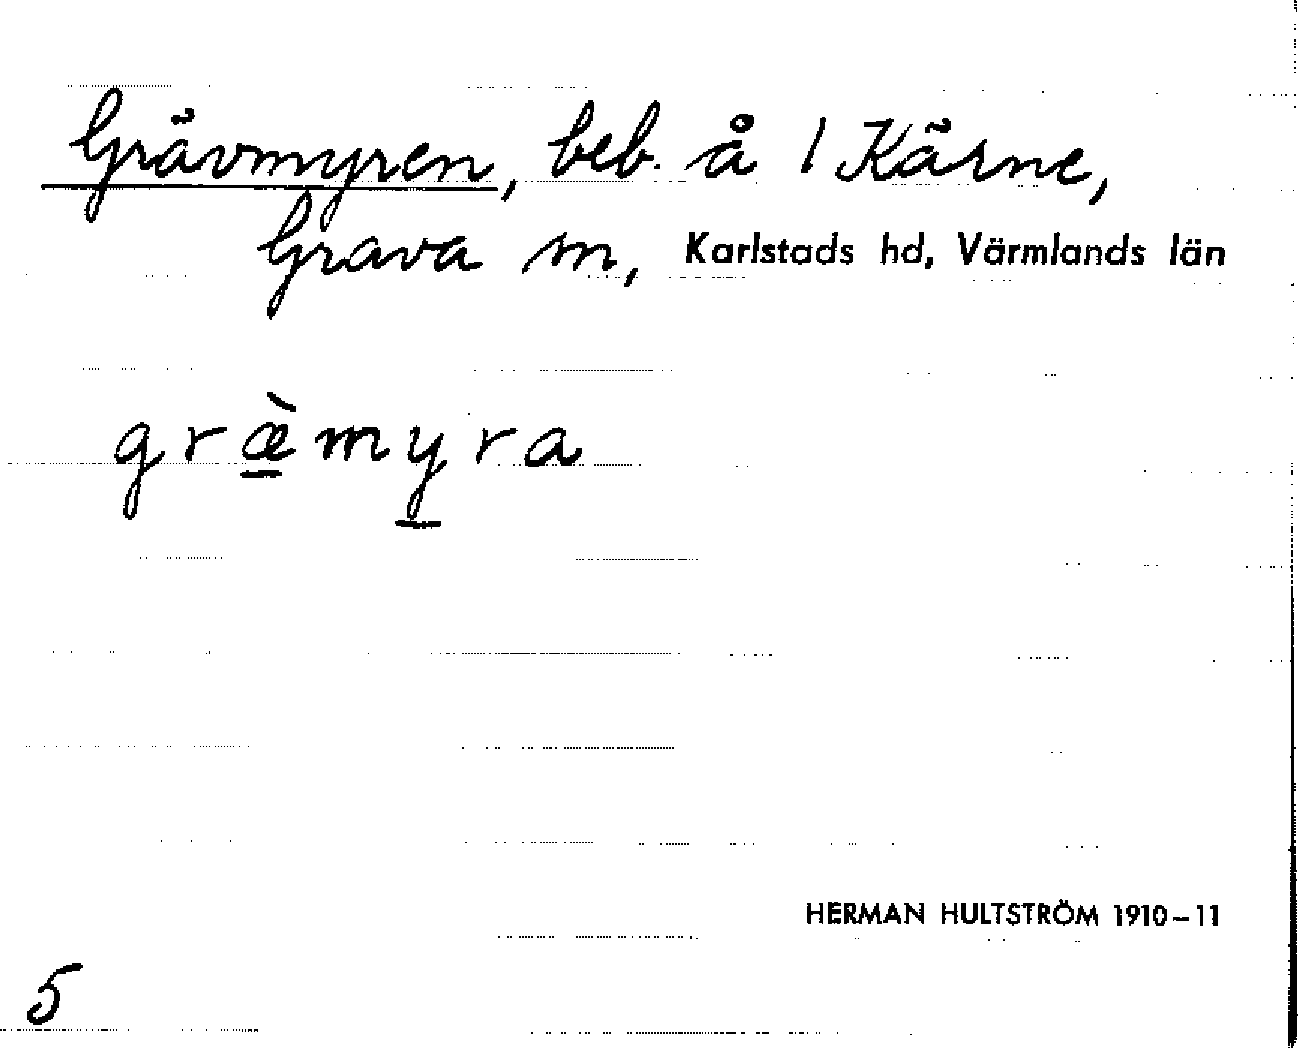 Grävmyren, beb. å 1 Kärne,
Grava sn, Karlstads hd, Värmlands län
græ̀myra
HERMAN HULTSTRÖM 1910–11
5